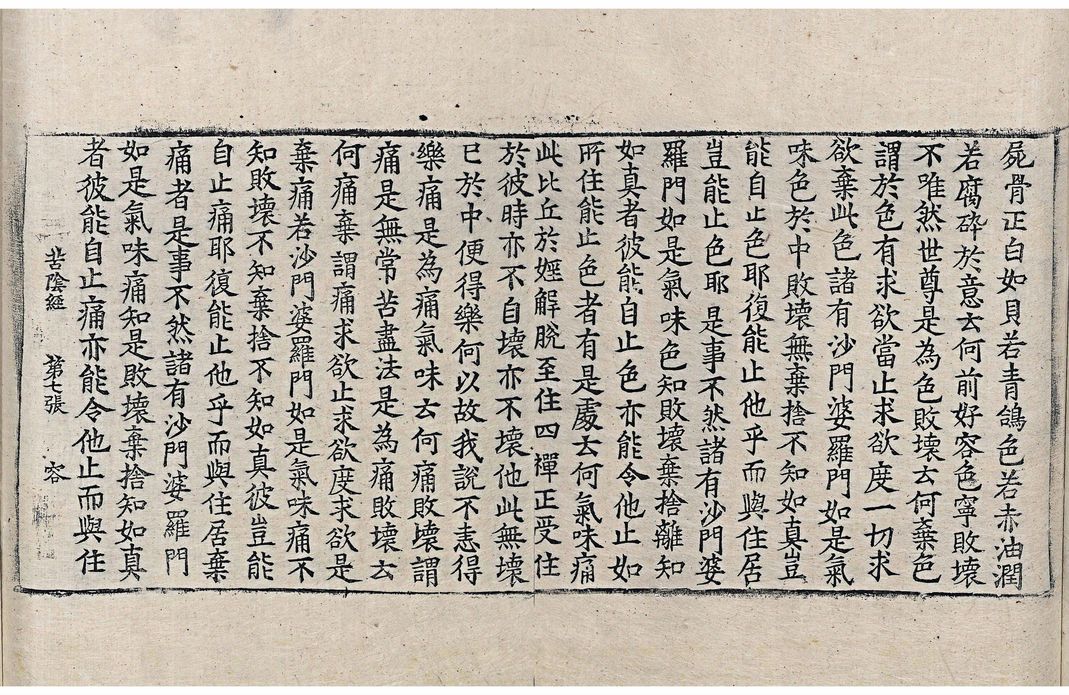 屍骨正白如貝若青鴿色若赤油潤
若腐碎於意云何前好容色寧敗壞
不唯然世尊是為色敗壞云何棄色
謂於色有求欲當止求欲度一切求
欲棄此色諸有沙門婆羅門如是氣
味色於中敗壞無棄捨不知如真豈
能自止色耶復能止他乎而與住居
豈能止色耶是事不然諸有沙門婆
羅門如是氣味色知敗壞棄捨離知
如真者彼能自止色亦能令他止如
所住能止色者有是處云何氣味痛
此比丘於婬解脫至住四禪正受住
於彼時亦不自壞亦不壞他此無壞
已於中便得樂何以故我說不恚得
樂痛是為痛氣味云何痛敗壞謂
痛是無常苦盡法是為痛敗壞云
何痛棄謂痛求欲止求欲度求欲是
棄痛若沙門婆羅門如是氣味痛不
知敗壞不知棄捨不知如真彼豈能
自止痛耶復能止他乎而與住居棄
痛者是事不然諸有沙門婆羅門
如是氣味痛知是敗壞棄捨知如真
者彼能自止痛亦能令他止而與住
苦陰經 第七張 容